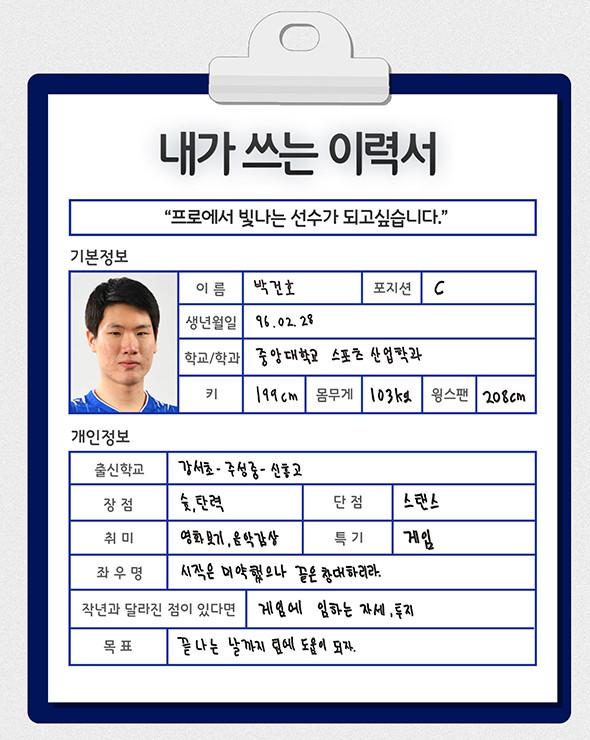 내가 쓰는 이력서
“프로에서 빛나는 선수가 되고싶습니다.”
기본정보
이 름 박건호 포지션 C
생년월일 96.02.28
학교/학과 중앙대학교 스포츠 산업학과
키 199cm 몸무게 103kg 윙스팬 208cm
개인정보
출신학교 강서초-주성중-신흥고
장 점 슛,탄력 단 점 스탠스
취 미 영화보기,음악감상 특 기 게임
좌 우 명 시작은 미약했으나 끝은 창대하리라.
작년과 달라진 점이 있다면 게임에 임하는 자세,투지
목 표 끝나는 날까지 팀에 도움이 되자.